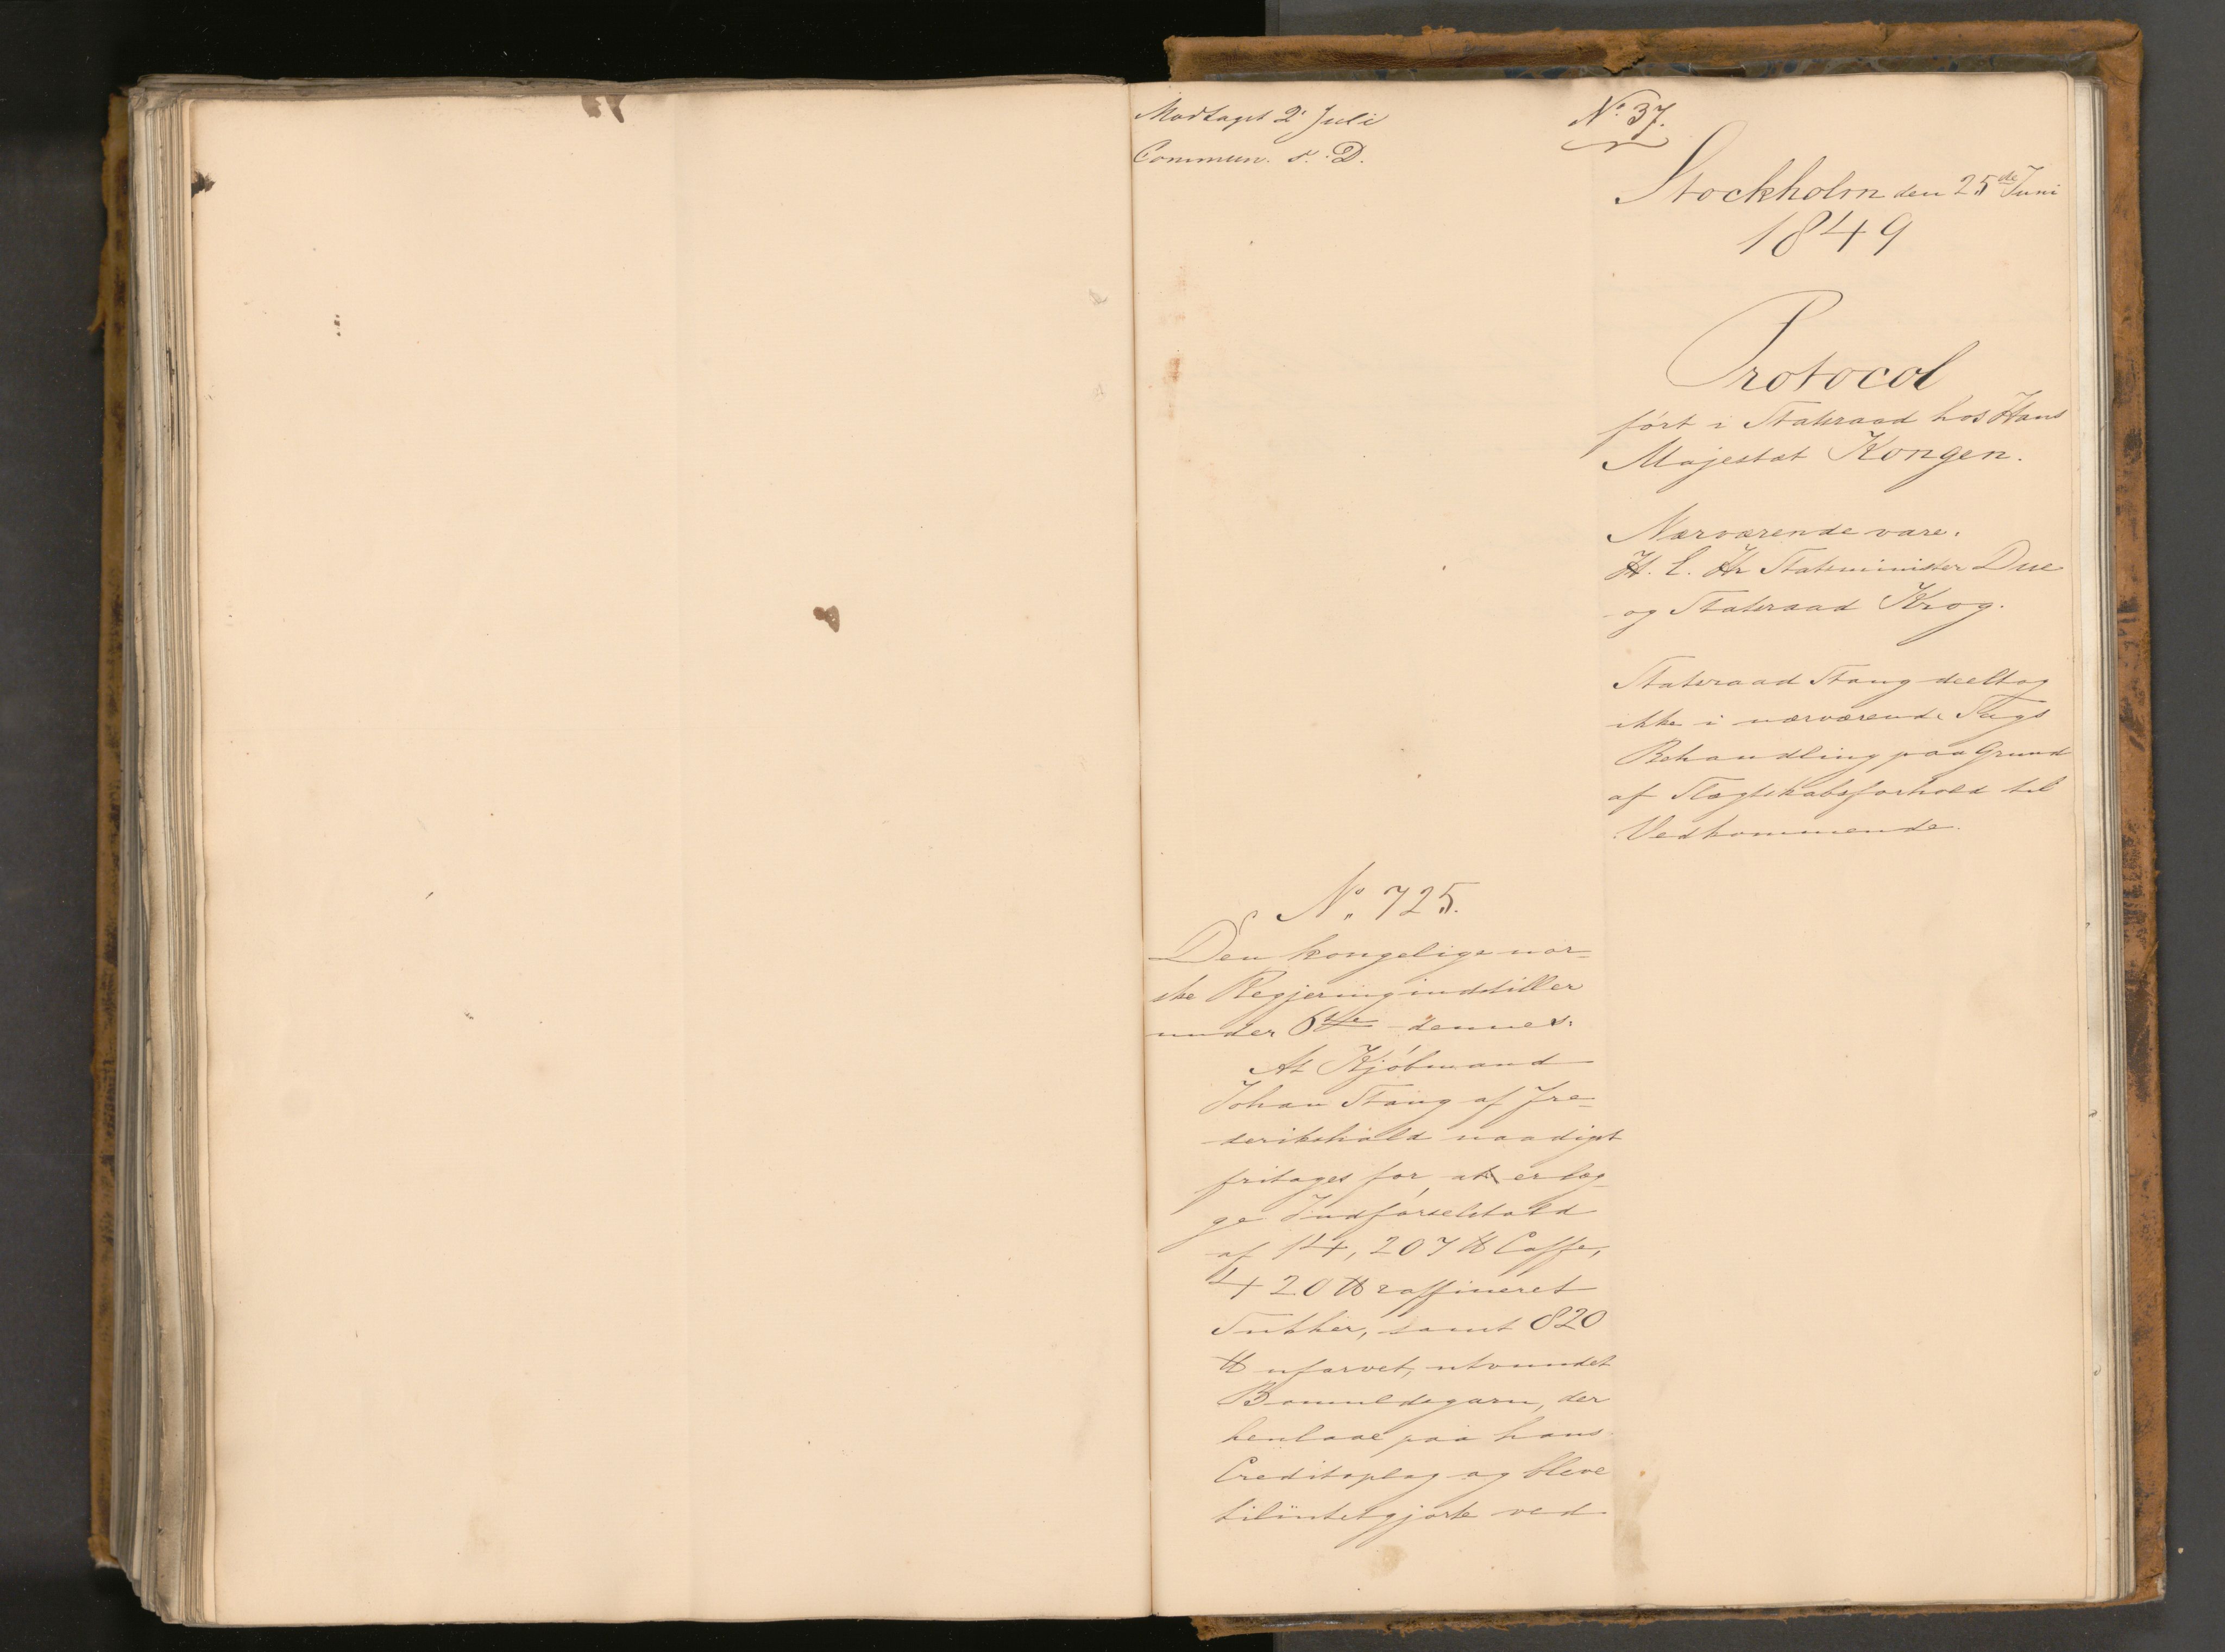 Modtaget 2' Juli
Commun. s. D.
No. 37.
Stockholm den 25de Juni
1849
Protocol
ført i Statsraad hos Hans
Majestæt Kongen.
Nærværende vare.
H. E. Hr Statsminister Due
og Statsraad Krog.
Statsraad Stang deeltog
ikke i nærværende Sags
Behandling paa Grund
af Slægtskabsforhold til
Vedkommende.
No. 725.
Den kongelige nor=
ske Regjering indstiller
under 6te dennes.
At Kjøbmand
Johan Stang af Fre=
derikshald naadigst
fritages for at erlæg
ge Indførselstold
af 14,207 ℔ Caffe,
420 ℔ raffineret
Sukker, samt 820
℔ ufarvet, utvundet
Bomuldsgarn, der
henlaae paa hans
Creditoplag og bleve
tilintetgjorte ved